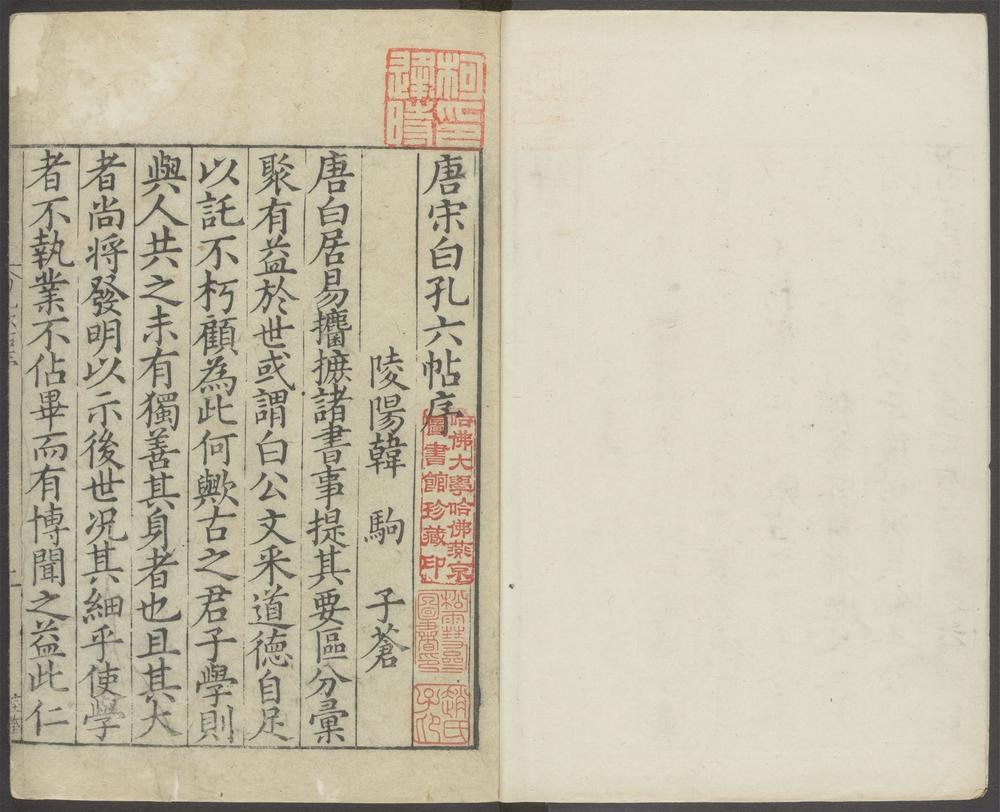 唐宋白孔六帖序
陵陽韓 駒 子蒼
唐白居易攟摭諸書事提其要區分彙
聚有益於世或謂白公文采道德自足
以託不朽顧為此何歟古之君子學則
與人共之未有獨善其身者也且其大
者尚將發明以示後世况其細乎使學
者不執業不佔畢而有博聞之益此仁
哈佛大學哈佛燕京
圖書館珍藏印
柯印
逢時
趙氏
子印